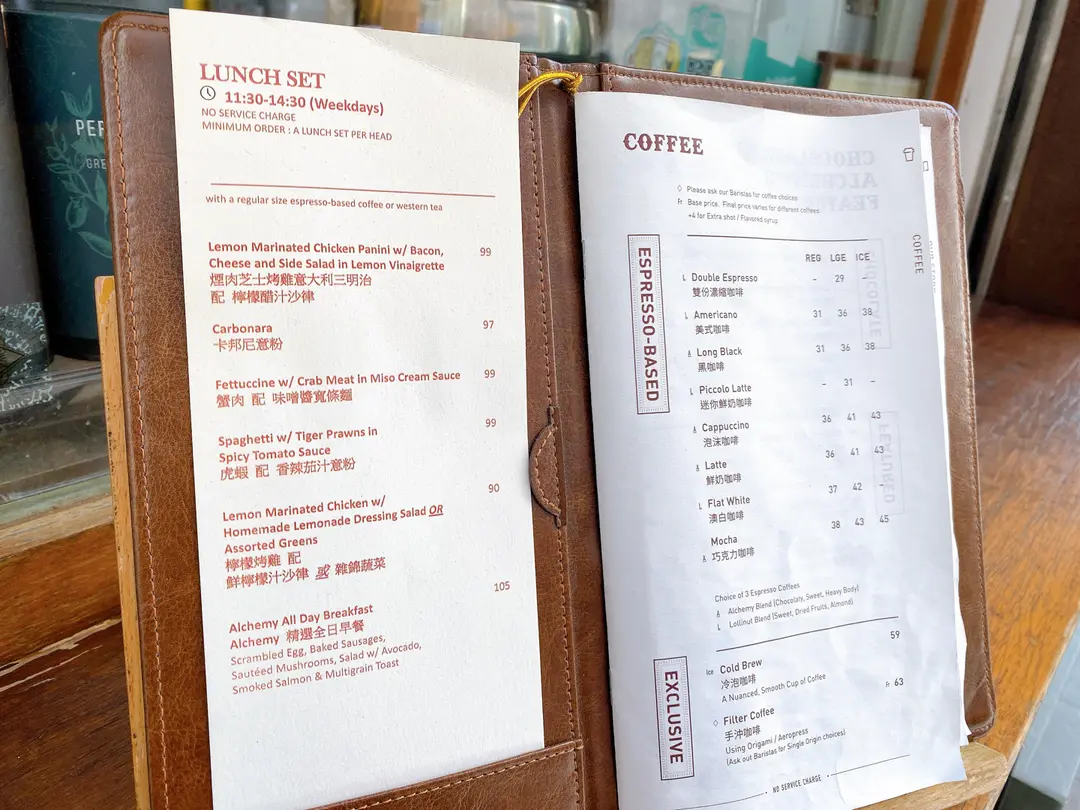 LUNCH SET
11:30-14:30 (Weekdays)
NO SERVICE CHARGE
MINIMUM ORDER : A LUNCH SET PER HEAD
with a regular size espresso-based coffee or western tea
Lemon Marinated Chicken Panini w/ Bacon, 99
Cheese and Side Salad in Lemon Vinaigrette
煙肉芝士烤雞意大利三明治
配 檸檬醋汁沙律
Carbonara 97
卡邦尼意粉
Fettuccine w/ Crab Meat in Miso Cream Sauce 99
蟹肉 配 味噌醬寬條麵
Spaghetti w/ Tiger Prawns in 99
Spicy Tomato Sauce
虎蝦 配 香辣茄汁意粉
Lemon Marinated Chicken w/ 90
Homemade Lemonade Dressing Salad OR
Assorted Greens
檸檬烤雞 配
鮮檸檬汁沙律 或 雜錦蔬菜
Alchemy All Day Breakfast 105
Alchemy 精選全日早餐
Scrambled Egg, Baked Sausages,
Sautéed Mushrooms, Salad w/ Avocado,
Smoked Salmon & Multigrain Toast
COFFEE
Please ask our Baristas for coffee choices
Fr Base price. Final price varies for different coffees
+4 for Extra shot / Flavored syrup
COFFEE
ESPRESSO-BASED
REG LGE ICE
L Double Espresso - 29 -
雙份濃縮咖啡
L Americano 31 36 38
美式咖啡
A Long Black 31 36 38
黑咖啡
L Piccolo Latte - 31 -
迷你鮮奶咖啡
A Cappuccino 36 41 43
泡沫咖啡
A Latte 36 41 43
鮮奶咖啡
L Flat White 37 42 -
澳白咖啡
Mocha 38 43 45
A 巧克力咖啡
Choice of 3 Espresso Coffees
A Alchemy Blend (Chocolaty, Sweet, Heavy Body)
L Lollinut Blend (Sweet, Dried Fruits, Almond)
EXCLUSIVE
Ice Cold Brew 59
冷泡咖啡
A Nuanced, Smooth Cup of Coffee
Filter Coffee Fr 63
手沖咖啡
Using Origami / Aeropress
(Ask out Baristas for Single Origin choices)
NO SERVICE CHARGE